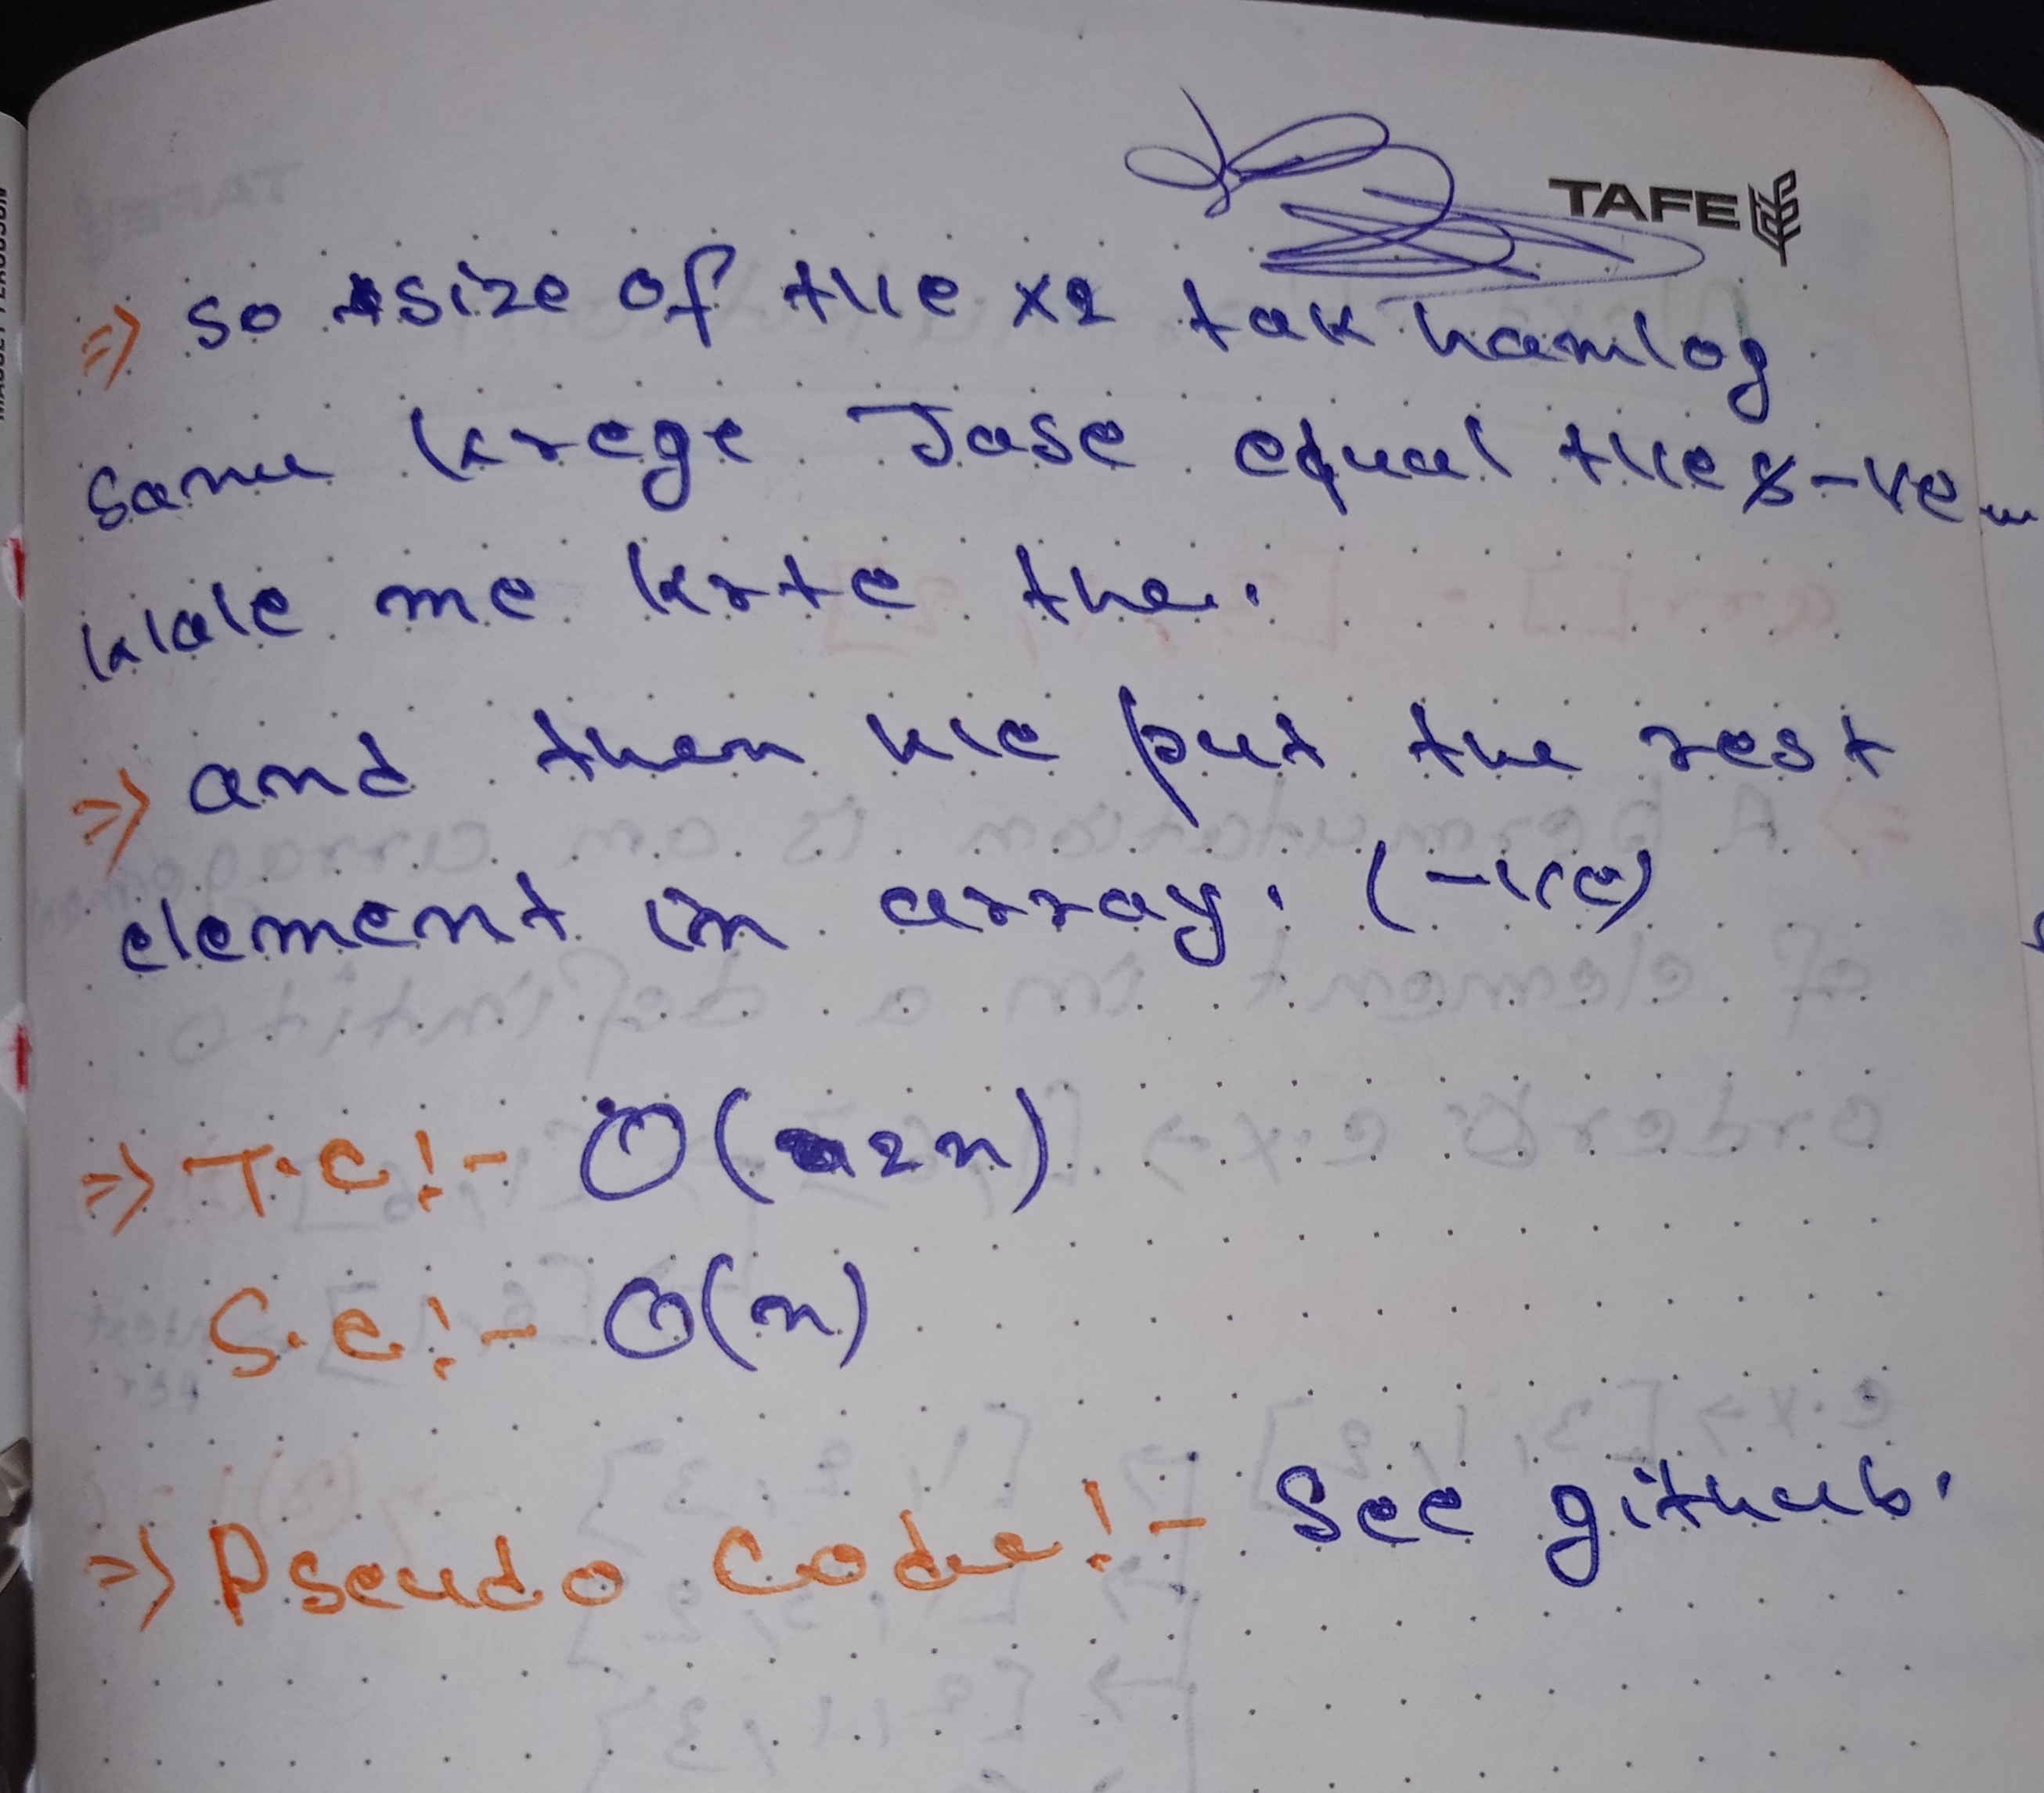 TAFE
⇒ so size of the x2 tak hamlog
same krege Jase equal the -ve
wale me krte the.
⇒ and then we put the rest
element in array. (-ve)
⇒ T.C!- O(2n)
S.C!- O(n)
⇒ Pseudo Code!- See github.